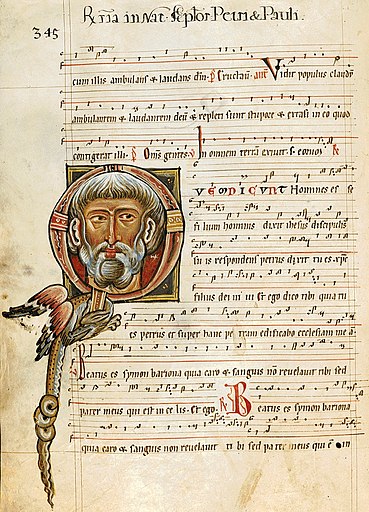 345
in Nat. Petri & Pauli.
cum illis ambulans & laudans dm̄ Vidit populus claudū
ambulantem & laudantem deū & repleti sunt stupore & extasi in eo quod
contigerat illi. Omīs gentes. In omnem terrā exivit.
VE DICUNT Homines es se
filium hominis dixit ihesus discipulis
suis respondens petrus dixit tu es xp̄c
filius dei vivi & ego dico tibi quia tu
es petrus et super hanc pe tram edificabo ecclesiam me ā
Beatus es symon bariona quia caro & sanguis nō revelavit tibi sed
pater meus qui est in ce lis. & ego. Beatus es symon bariona
quia caro & sanguis non revelavit ti bi sed pater meus qui ē in